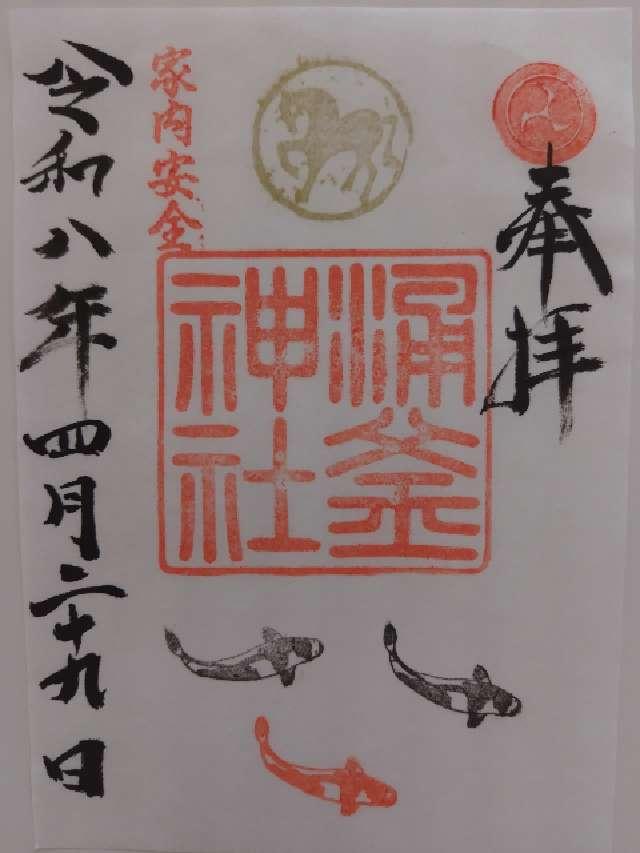 奉拝
涌釜
神社
家内安全
令和八年四月二十九日